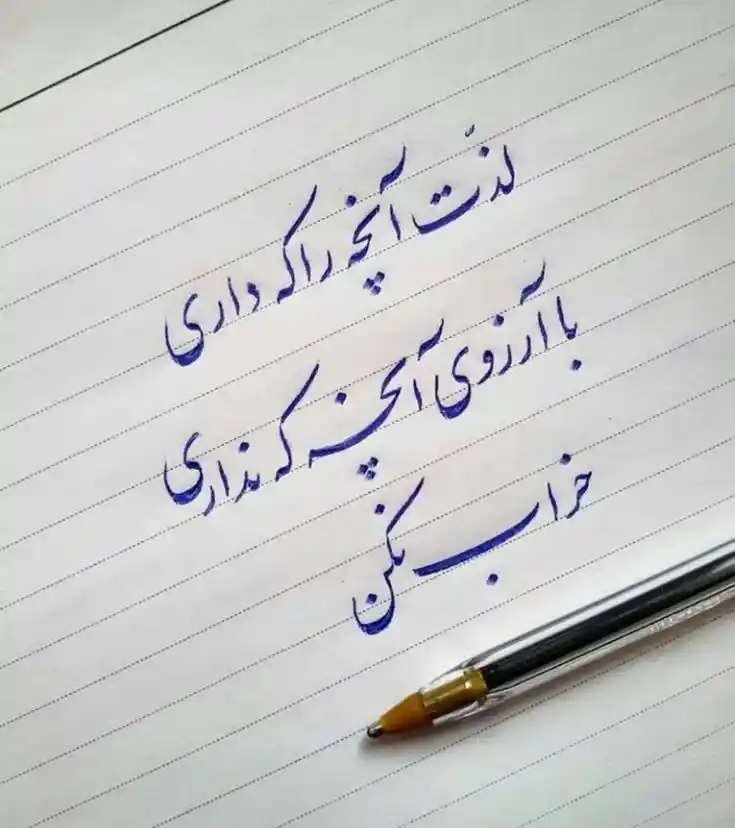 لذّت آنچه را که داری
با آرزوی آنچه که نداری
خراب نکن